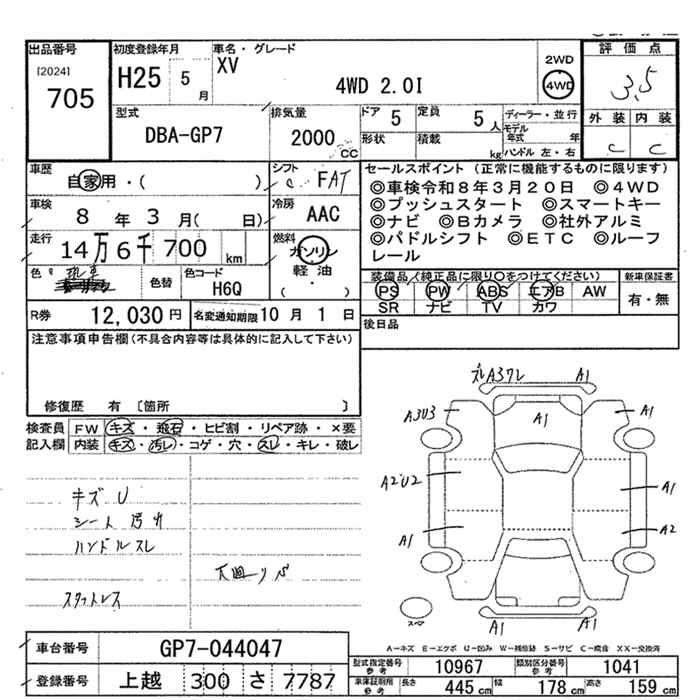 出品番号 [2024] 705
初度登録年月 H25 5 月
車名・グレード XV 4WD 2.0I
2WD 4WD
評価点 3.5
外装 内装
C C
型式 DBA-GP7
排気量 2000 CC
ドア 5 定員 5 人
形状 積載 kg
ディーラー・並行
モデル年式 年
ハンドル 左・右
車歴 自家用・( )
シフト FAT
車検 8 年 3 月( 日)
冷房 AAC
走行 14万6千700 km
燃料 ガソリン 軽油 ( )
色 色替 色コード H6Q
R券 12,030円 名変通知期限 10月 1日
セールスポイント(正常に機能するものに限ります)
◎車検令和8年3月20日 ◎4WD
◎プッシュスタート ◎スマートキー
◎ナビ ◎Bカメラ ◎社外アルミ
◎パドルシフト ◎ETC ◎ルーフ
レール
装備品(純正品に限り○をつけてください) 新車保証書
PS PW ABS エアB AW 有・無
SR ナビ TV カワ
後日品
注意事項申告欄(不具合内容等は具体的に記入して下さい)
修復歴 有 〔箇所 〕
検査員 FW キズ・飛石・ヒビ割・リペア跡・×要
記入欄 内装 キズ・汚レ・コゲ・穴・スレ・キレ・破レ
キズ U
シート汚れ
ハンドルスレ
スタットレス
下廻りサビ
A1
A3U3 A1 A1
A2U2 A1
A1 A2
A1 A1
スペア
A-キズ E-エクボ U-凹み W-補修跡 S-サビ C-腐食 XX-交換済
車台番号 GP7-044047
登録番号 上越 300 さ 7787
型式指定番号 参考 10967 類別区分番号 参考 1041
車庫証明用 参考 長さ 445cm 幅 178cm 高さ 159cm